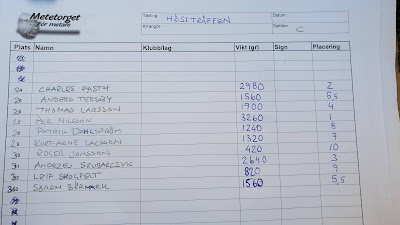 Metetorget
för metare
Tävling HÖSTTRÄFFEN Datum
Arrangör Sektion C
Plats Namn Klubb/lag Vikt (gr) Sign Placering
CHARLES PASTH 2980 2
ANDERS TERSBY 1560 5,5
THOMAS LARSSON 1900 4
PER NILSSON 3260 1
PATRIK DAHLSTRÖM 1240 8
KURT-ARNE LARSSON 1320 7
ROGER JONSSON 420 10
ANDRZEJ SZUBARCZYK 2640 3
LEIF SKOGFELT 820 9
SÖREN 1560 5,5